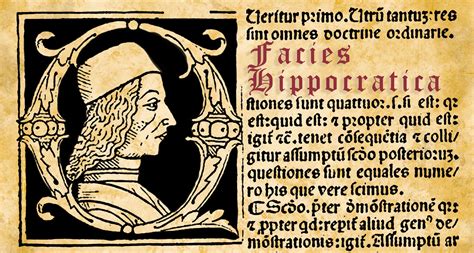 Queritur primo. Utrũ tantuȝ: res
sint omnes doctrine ordinarie.
Facies
Hippocratica
stiones sunt quattuor. s. si est: qr
est: quid est: ⁊ propter quid est
igit᷑ ⁊c̃. tenet cõsequẽtia ⁊ colli⸗
gitur assumptũ scd̃o posterioruȝ.
questiones sunt equales nume⸗
ro his que vere scimus.
¶ Scd̃o. p̃ter dmõstrationẽ qr
⁊ ꝓpter qd: repit᷑ aliud genꝰ de⸗
mõstrationis: igit᷑. Assumptũ ar